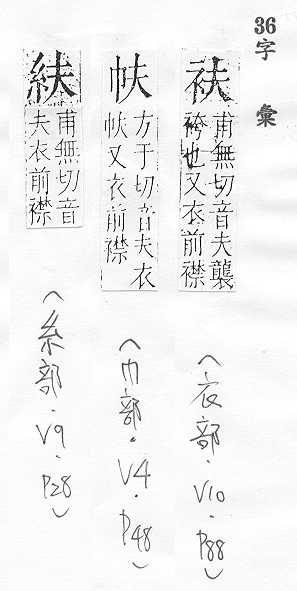 36
字彙
袚
甫無切音夫襲
袴也又衣前襟
(衣部.V10.P88)
帗
方于切音夫衣
帗又衣前襟
(巾部.V4.P48)
紱
甫無切音
夫衣前襟
(糸部.V9.P28)